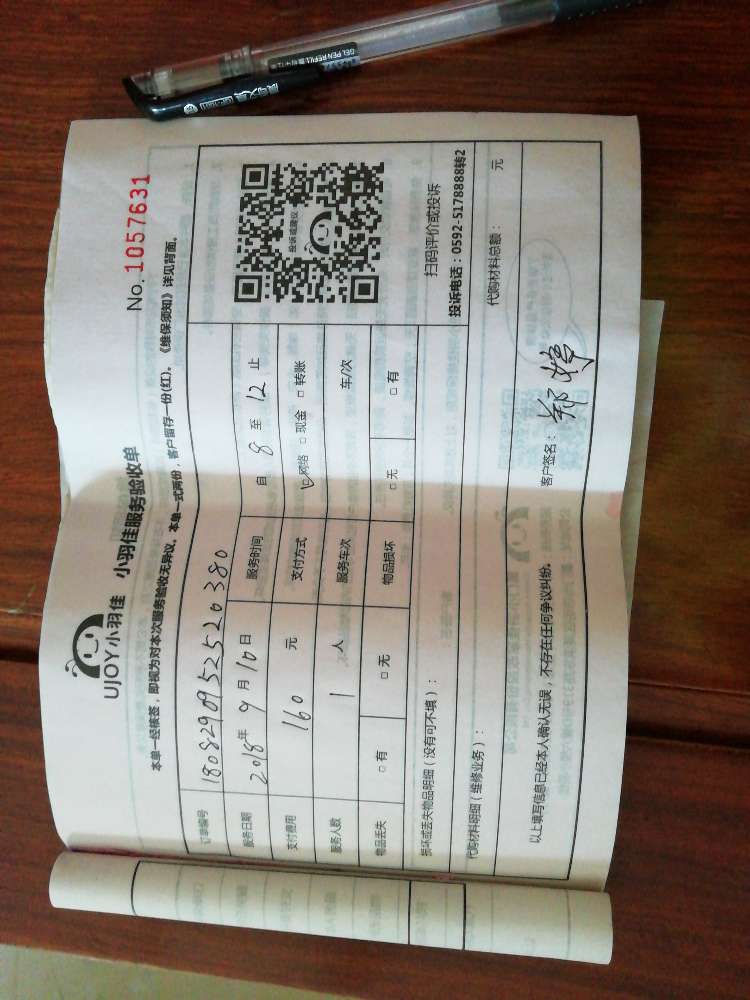 UJOY小羽佳 小羽佳服务验收单
No. 1057631
本单一经核签，即视为对本次服务验收无异议。本单一式两份，客户留存一份(红)。《维保须知》详见背面。
订单编号 180829095252520380
服务日期 2018年 9月 10日 服务时间 自 8 至 12 止
支付费用 160 元 支付方式 网络 现金 转账
服务人数 1 人 服务车次 车/次
物品丢失 有 无 物品损坏 无 有
投诉或建议
扫码评价或投诉
投诉电话：0592-5178888转2
损坏或丢失物品明细（没有可不填）：
代购材料明细（维修业务）： 代购材料总额： 元
以上填写信息已经本人确认无误，不存在任何争议纠纷。 客户签名： 郑婷
GEL PEN REFILL